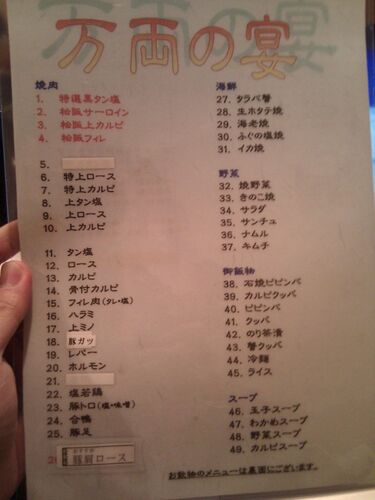 万両の宴
焼肉
1. 特選黒タン塩
2. 松阪サーロイン
3. 松阪上カルビ
4. 松阪フィレ
5.
6. 特上ロース
7. 特上カルビ
8. 上タン塩
9. 上ロース
10. 上カルビ
11. タン塩
12. ロース
13. カルビ
14. 骨付カルビ
15. フィレ肉(タレ・塩)
16. ハラミ
17. 上ミノ
18. 豚ガツ
19. レバー
20. ホルモン
21.
22. 塩若鶏
23. 豚トロ(塩・味噌)
24. 合鴨
25. 豚足
26 豚肩ロース
海鮮
27. タラバ蟹
28. 生ホタテ焼
29. 海老焼
30. ふぐの塩焼
31. イカ焼
野菜
32. 焼野菜
33. きのこ焼
34. サラダ
35. サンチュ
36. ナムル
37. キムチ
御飯物
38. 石焼ビビンバ
39. カルビクッパ
40. ビビンバ
41. クッパ
42. のり茶漬
43. 蟹クッパ
44. 冷麺
45. ライス
スープ
46. 玉子スープ
47. わかめスープ
48. 野菜スープ
49. カルビスープ
お飲物のメニューは裏面にございます。